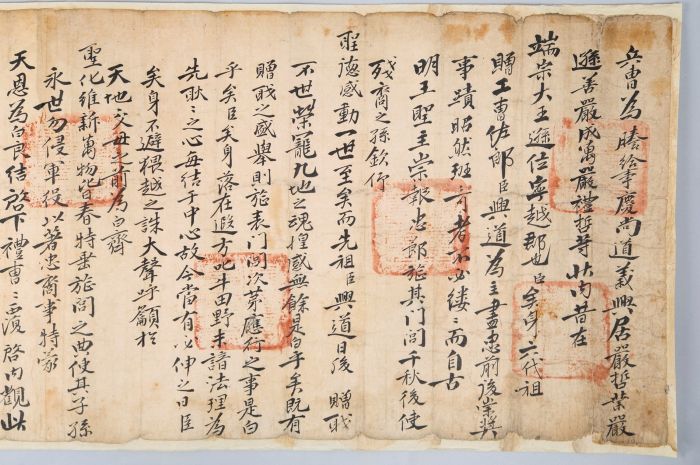 兵曹為謄給事慶尚道義興居嚴哲業嚴
遜善嚴成寓嚴禮哲等狀內昔在
端宗大王遜位寧越郡也臣矣身六代祖
贈工曹佐郎臣興道為主盡忠前後崇奬
事蹟昭然班〻可考者不必縷〻而自古
明王聖主崇報忠節旌其門閭千秋後使
殘裔之孫欽行
聖德感動一世至矣而先祖臣興道日後 贈職
不世榮寵九地之魂惶感無餘是白乎矣既有
贈職之盛舉則旌表門閭次第應行之事是白
乎矣臣矣身落在遐方叱牛田野未諳法理為
先耿〻之心每結于中心故今當有以伸之日臣
矣身不避猥越之誅大聲呼籲於
天地父母之前為白齊
聖化維新萬物皆春特垂旌閭之典使其子孫
永世勿侵軍役以著忠裔事特蒙
天恩為白良結啓下禮曹〻覆啓內觀此